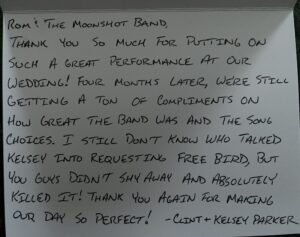 Rom & The Moonshot Band,
Thank you so much for putting on
such a great performance at our
wedding! Four months later, we're still
getting a ton of compliments on
how great the band was and the song
choices. I still don't know who talked
Kelsey into requesting Free Bird, but
you guys didn't shy away and absolutely
killed it! Thank you again for making
our day so perfect! -Clint + Kelsey Parker